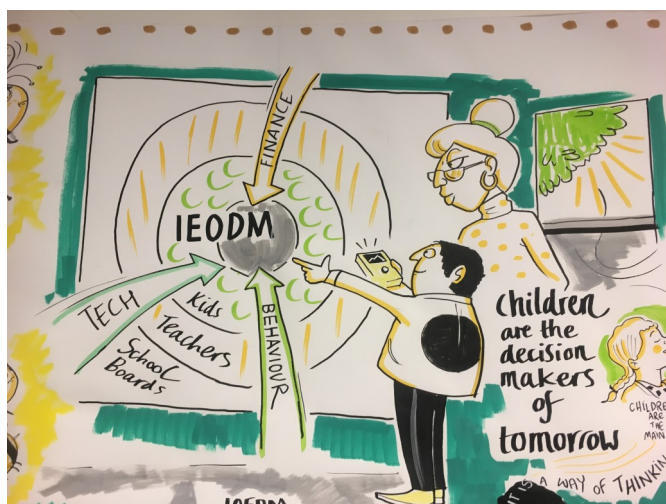 FINANCE
IEODM
TECH
Kids
Teachers
School
Boards
BEHAVIOUR
children
are the
decision
makers
of
tomorrow
CHILDRE
ARE
THE
MAIN
IT IS A WAY OF THINKIN
IEODM